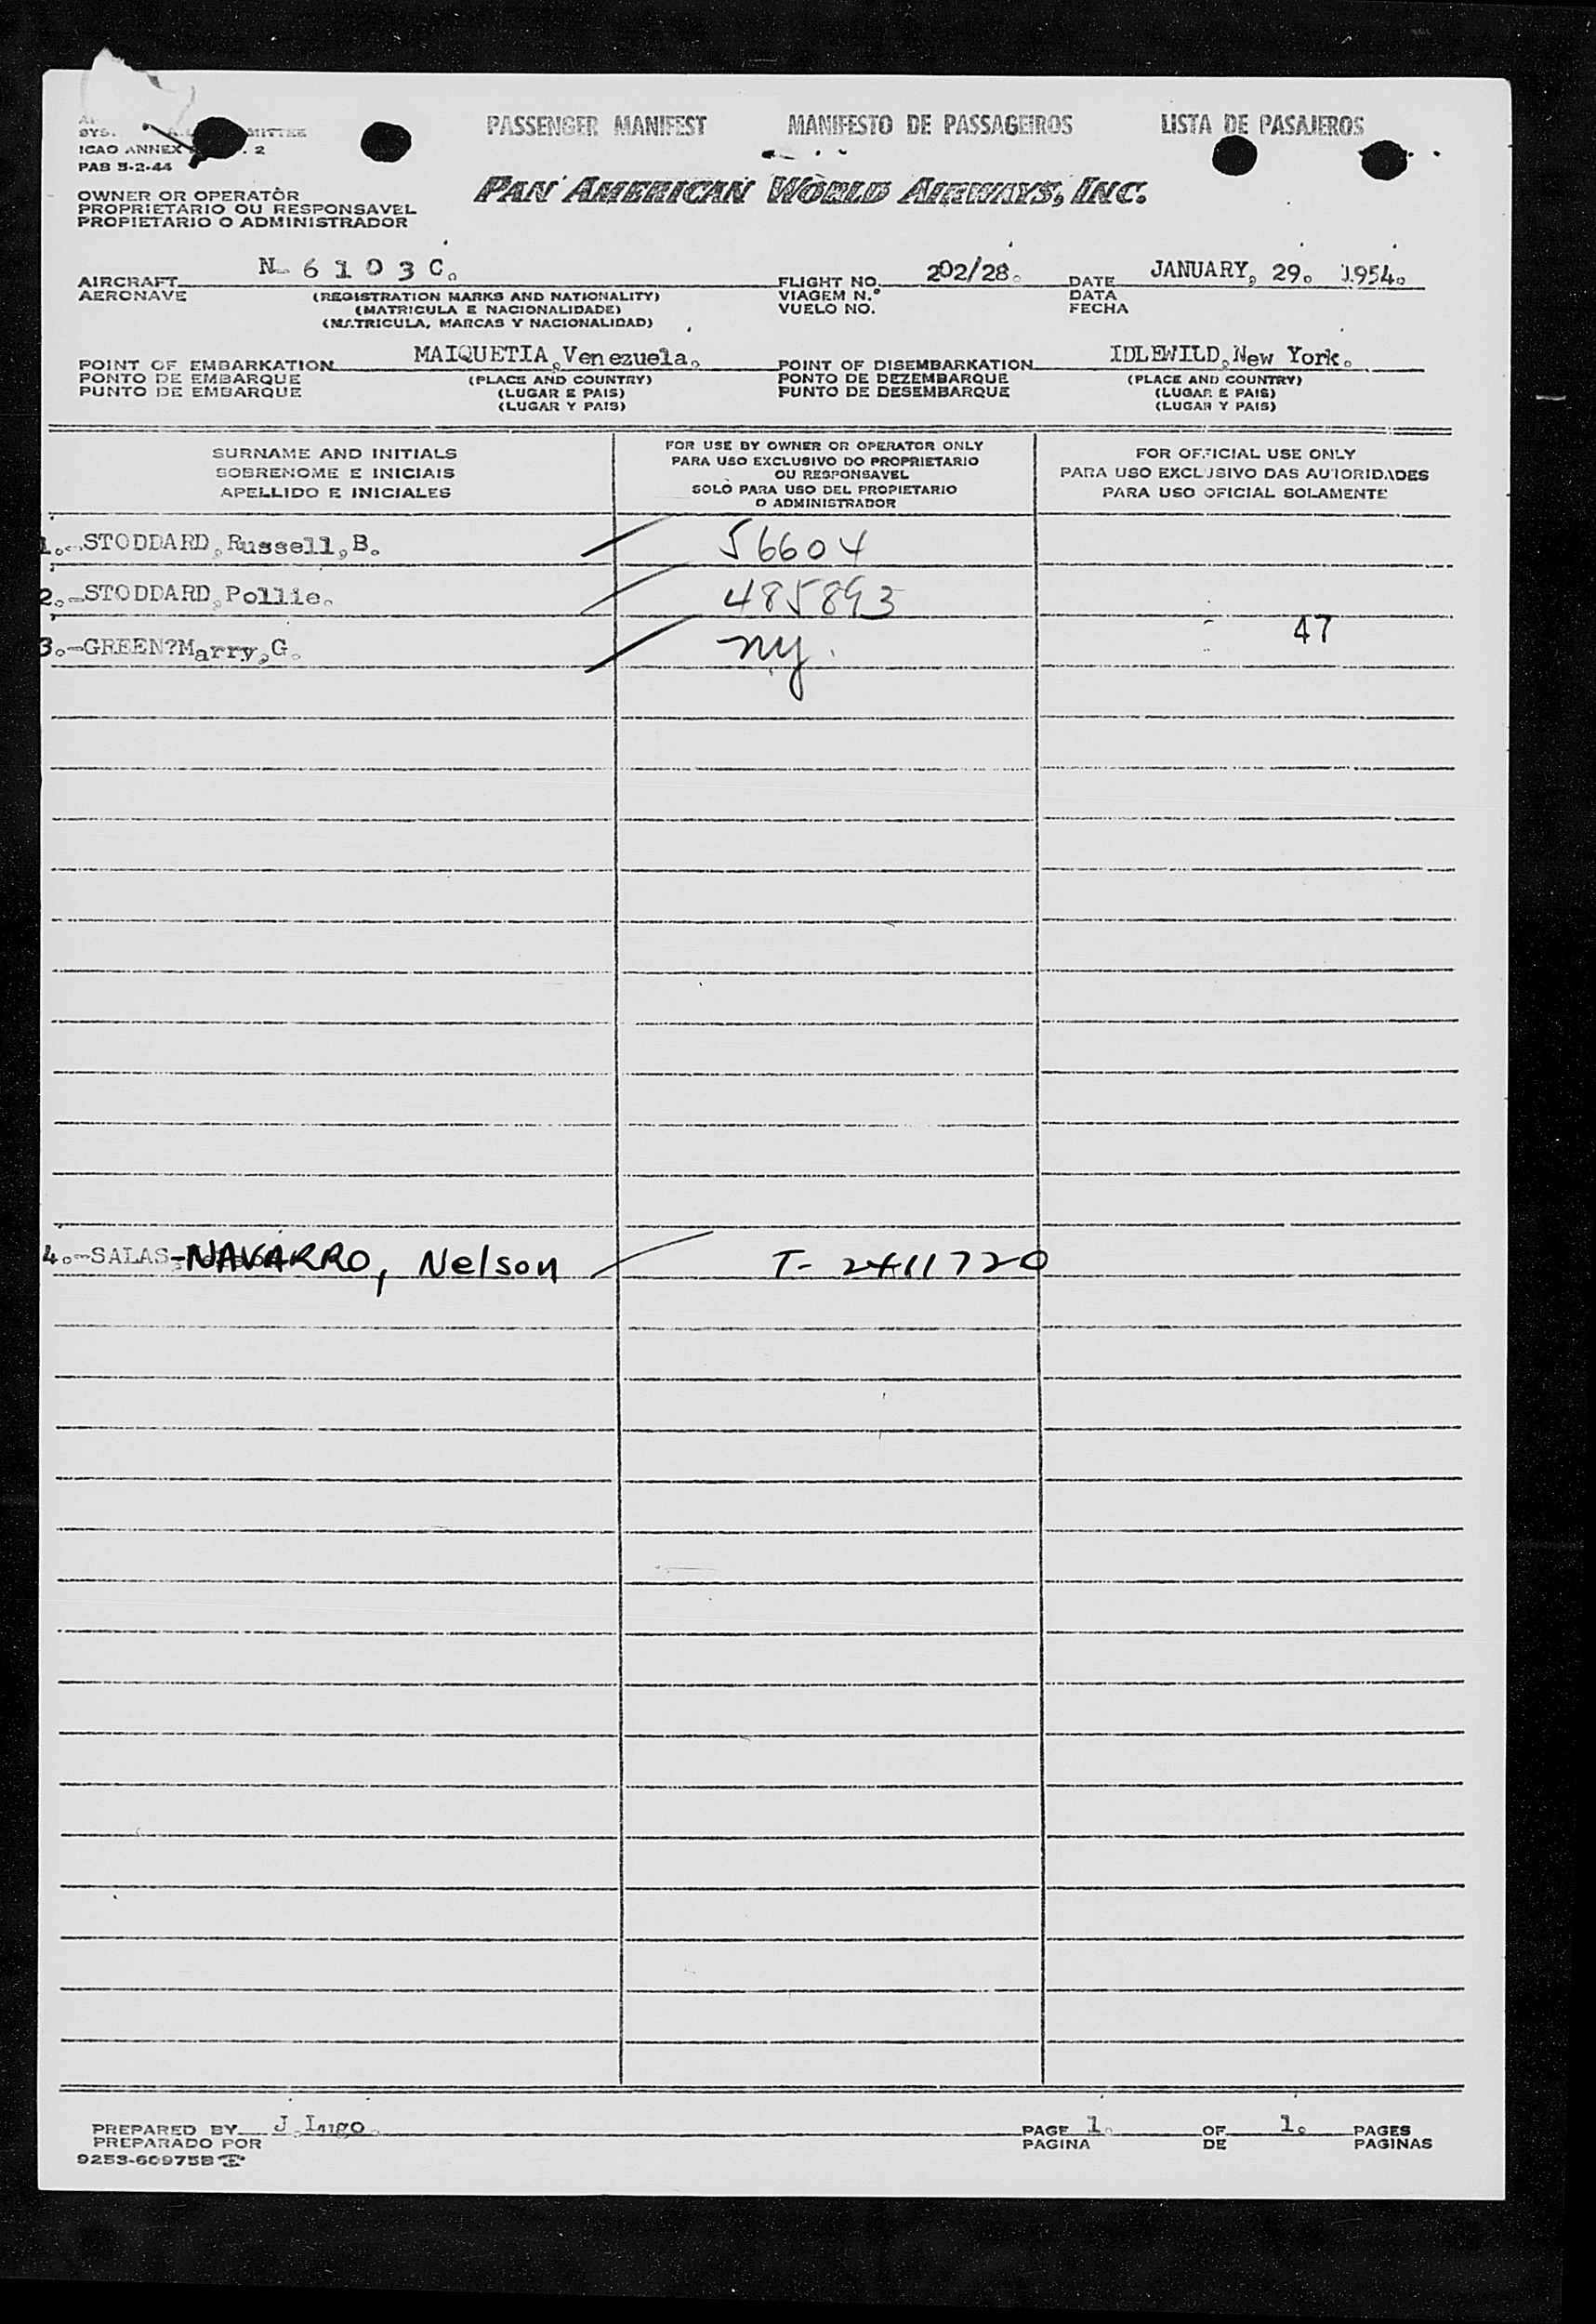 PASSENGER MANIFEST MANIFESTO DE PASSAGEIROS LISTA DE PASAJEROS
ICAO ANNEX 2
PAB 5-2-44
PAN AMERICAN WORLD AIRWAYS, INC.
OWNER OR OPERATOR
PROPRIETARIO OU RESPONSAVEL
PROPIETARIO O ADMINISTRADOR
AIRCRAFT N- 6 1 0 3 C. FLIGHT NO. 202/28. DATE JANUARY, 29. 1954.
AERONAVE (REGISTRATION MARKS AND NATIONALITY) VIAGEM N.° DATA
(MATRICULA E NACIONALIDADE) VUELO NO. FECHA
(MATRICULA, MARCAS Y NACIONALIDAD)
POINT OF EMBARKATION MAIQUETIA, Venezuela. POINT OF DISEMBARKATION IDLEWILD, New York.
PONTO DE EMBARQUE (PLACE AND COUNTRY) PONTO DE DEZEMBARQUE (PLACE AND COUNTRY)
PUNTO DE EMBARQUE (LUGAR E PAIS) PUNTO DE DESEMBARQUE (LUGAR E PAIS)
(LUGAR Y PAIS) (LUGAR Y PAIS)
SURNAME AND INITIALS
SOBRENOME E INICIAIS
APELLIDO E INICIALES
FOR USE BY OWNER OR OPERATOR ONLY
PARA USO EXCLUSIVO DO PROPRIETARIO
OU RESPONSAVEL
SOLO PARA USO DEL PROPIETARIO
O ADMINISTRADOR
FOR OFFICIAL USE ONLY
PARA USO EXCLUSIVO DAS AUTORIDADES
PARA USO OFICIAL SOLAMENTE
1.-STODDARD, Russell, B. 56604
2.-STODDARD, Pollie. 485893
3.-GREEN?Marry, G. ny. 47
4.-SALAS-NAVARRO, Nelson T- 2411720
PREPARED BY J. Lugo. PAGE 1. OF 1. PAGES
PREPARADO POR PAGINA DE PAGINAS
9253-60975B